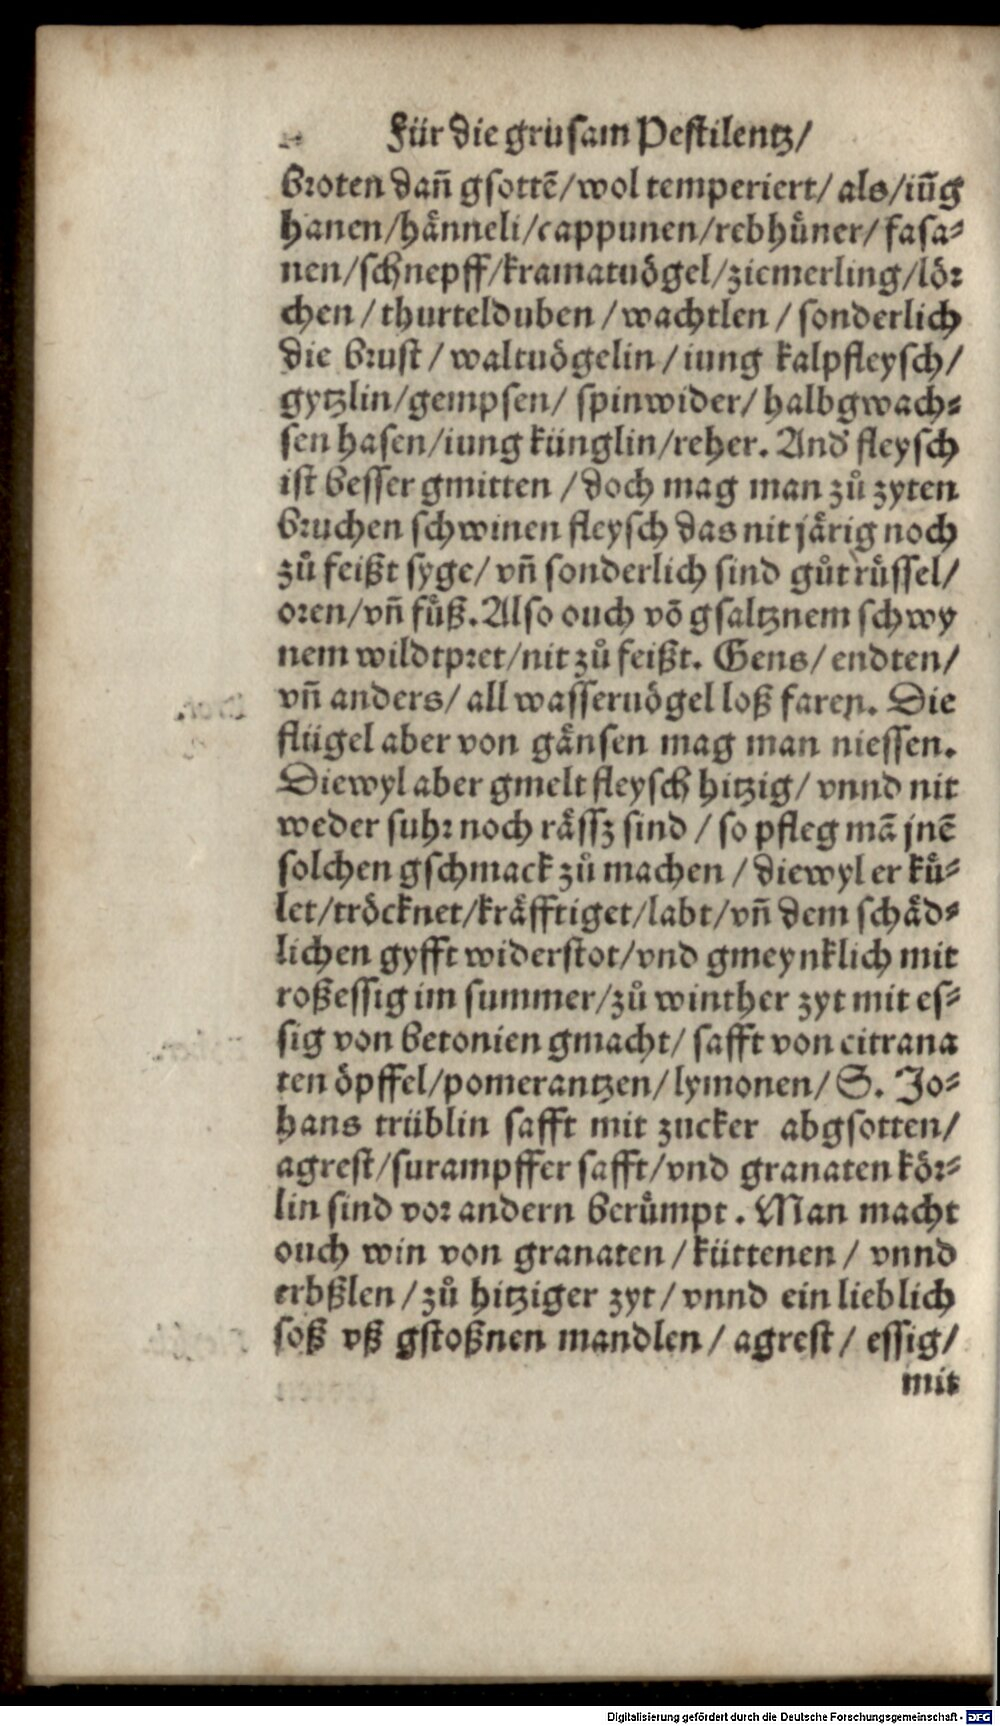 Für die grusam Pestilentz/
broten dañ gsottẽ/wol temperiert/ als/iũg
hanen/hånneli/cappunen/rebhůner/ fasa⸗
nen/schnepff/kramatuögel/ziemerling/lör
chen / thurtelduben / wachtlen / sonderlich
die brust / waltuögelin / iung kalpfleysch/
gytzlin/gempsen/ spinwider/ halbgwach⸗
sen hasen/iung künglin/reher. And fleysch
ist besser gmitten / doch mag man zů zyten
bruchen schwinen fleysch das nit jårig noch
zů feißt syge/ vñ sonderlich sind gůt růssel/
oren/vñ fůß. Also ouch võ gsaltznem schwy
nem wildtpret/nit zů feißt. Gens/ endten/
vñ anders/ all wasseruögel loß faren. Die
flügel aber von gånsen mag man niessen.
Diewyl aber gmelt fleysch hitzig/ vnnd nit
weder suhr noch råssz sind / so pfleg mã jnẽ
solchen gschmack zů machen / diewyl er ků⸗
let/tröcknet/kråfftiget/labt/vñ dem schåd⸗
lichen gyfft widerstot/vnd gmeynklich mit
roßessig im summer/zů winther zyt mit es⸗
sig von betonien gmacht/ safft von citrana
ten öpffel/pomerantzen/ lymonen/ S. Jo⸗
hans trüblin safft mit zucker abgsotten/
agrest/surampffer safft/vnd granaten kör⸗
lin sind vor andern berůmpt. Man macht
ouch win von granaten / küttenen / vnnd
erbßlen / zů hitziger zyt / vnnd ein lieblich
soß vß gstoßnen mandlen / agrest / essig/
mit
Digitalisierung gefördert durch die Deutsche Forschungsgemeinschaft - DFG